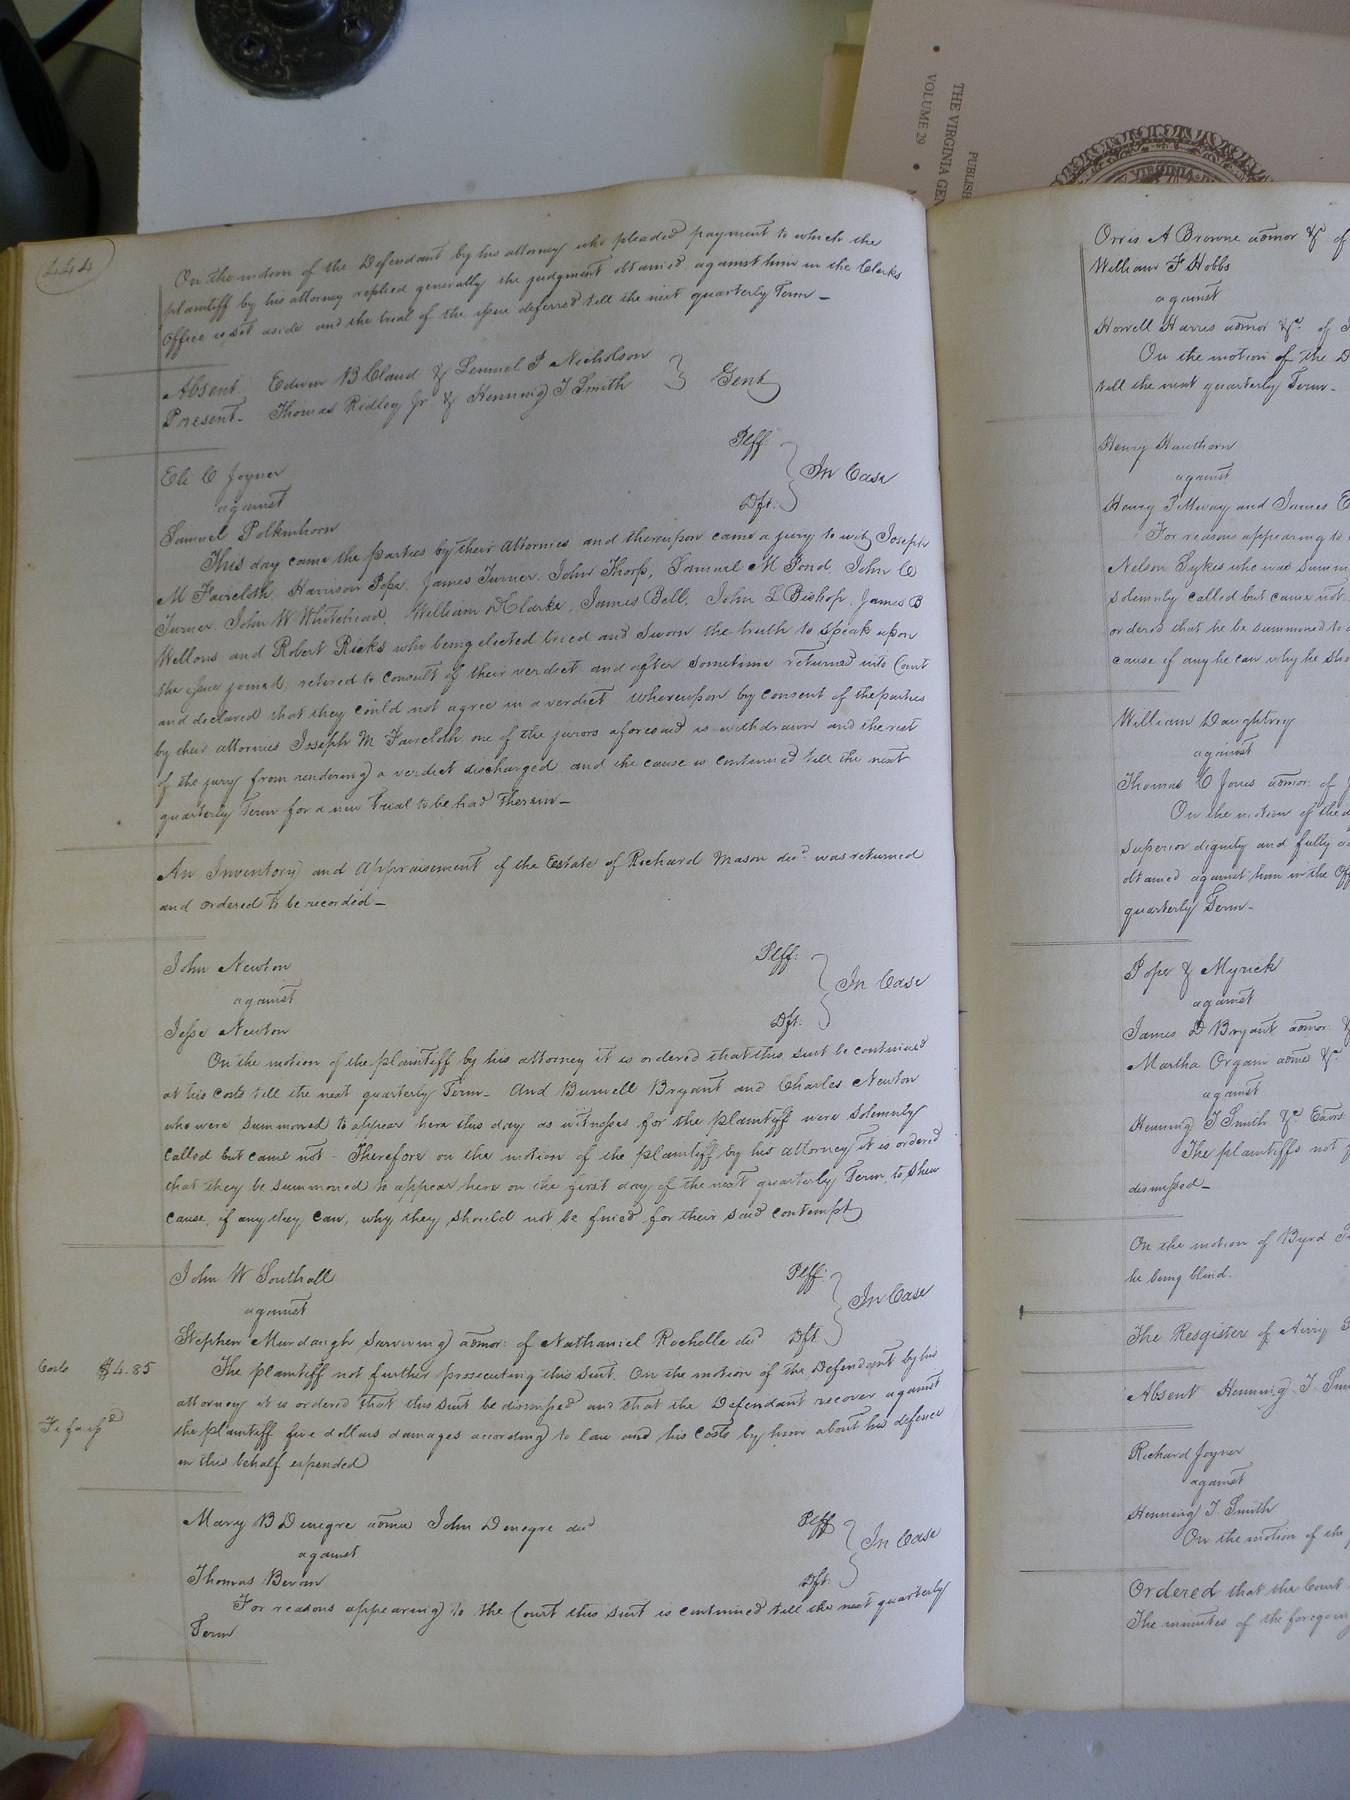 444
On the motion of the Defendant by his attorney who pleaded payment to which the
plaintiff by his attorney replied generally the judgment obtained against him in the Clerks
office is set aside and the trial of the issue deferred till the next quarterly Term—
Absent. Edwin B Claud & Lemuel P Nicholson
Present- Thomas Ridley Jr & Henning T Smith } Gent
Eli C Joyner Plff:
against } In Case
Samuel Polkinhorn Dft:
This day came the parties by their attornies and thereupon came a jury to wit, Joseph
M Faircloth, Harrison Pope, James Turner, John Thorp, Samuel M Pond, John C
Turner, John W Whitehead, William D Clarke, James Bell, John L Bishop, James B
Wellons and Robert Ricks who being elected tried and sworn the truth to speak upon
the issue joined, retired to consult of their verdict and after sometime returned into Court
and declared that they could not agree in a verdict whereupon by consent of the parties
by their attornies Joseph M Faircloth one of the jurors aforesaid is withdrawn and the rest
of the jury from rendering a verdict discharged and the cause is continued till the next
quarterly Term for a new trial to be had therein—
An Inventory and appraisement of the Estate of Richard Mason decd was returned
and ordered to be recorded—
John Newton Plff:
against } In Case
Jesse Newton Dft:
On the motion of the plaintiff by his attorney it is ordered that this suit be continued
at his costs till the next quarterly Term- And Burwell Bryant and Charles Newton
who were summoned to appear here this day as witnesses for the plaintiff were solemnly
called but came not - Therefore on the motion of the plaintiff by his attorney it is ordered
that they be summoned to appear here on the first day of the next quarterly Term, to shew
cause, if any they can, why they should not be fined for their said contempt
John W Southall Plff:
against } In Case
Stephen Murdaugh surviving admor: of Nathaniel Rochelle decd Dft
Costs $4.85
The plaintiff not further prosecuting this suit. On the motion of the Defendant by his
attorney it is ordered that this suit be dismissed and that the Defendant recover against
Fi fa issd
the plaintiff five dollars damages according to law and his costs by him about his defence
in this behalf expended
Mary B Denegre admx John Denegre decd Plff
against } In Case
Thomas Bevan Dft:
For reasons appearing to the Court this suit is continued till the next quarterly
Term
THE VIRGINIA GEN
VOLUME 29
PUBLISH
VIRGINIA
Orris A Browne admor &c of
William F Hobbs
against
Howell Harris admor &c of
On the motion of the D
till the next quarterly Term-
Henry Hawthorn
against
Henry Pittway and James
For reasons appearing to
Nelson Sykes who was summ
solemnly called but came not
ordered that he be summoned to
cause if any he can why he sho
William Daughtry
against
Thomas C Jones admor: of
On the motion of the d
superior dignity and fully
obtained against him in the Off
quarterly Term-
Pope & Myrick
against
James D Bryant admor:
Martha Organ admx &c
against
Henning T Smith &c Exors
The plaintiffs not
dismissed—
On the motion of Byrd
he being blind.
The Resgister of Airry
Absent Henning T Sm
Richard Joyner
against
Henning T Smith
On the motion of the
Ordered that the Court
The minutes of the foregoing